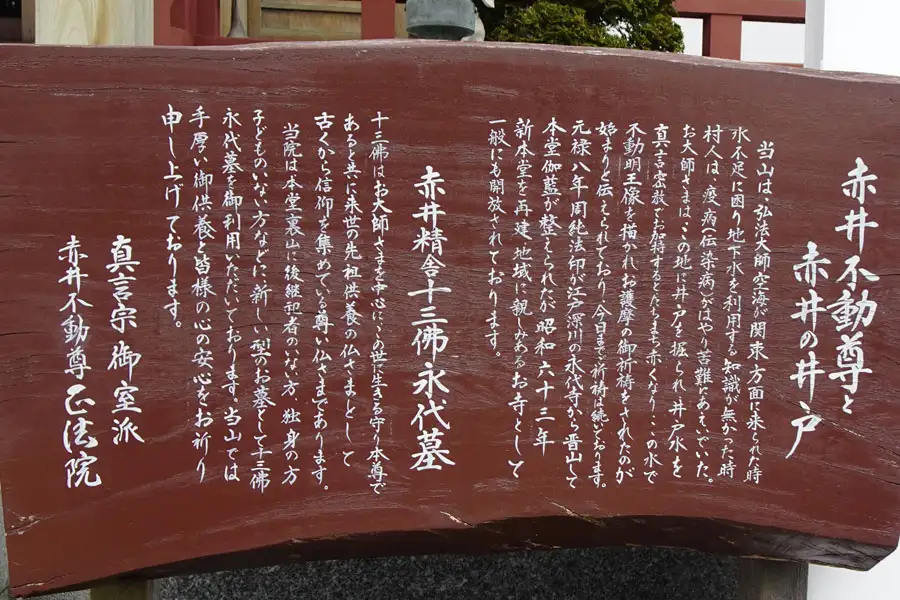 赤井不動尊と
赤井の井戸
当山は、弘法大師空海が関東方面に来られた時
水不足に困り地下水を利用する知識が無かった時
村人は、疫病(伝染病)がはやり苦難にあえいでいた。
お大師さまは、この地に井戸を掘られ、井戸水を
真言密教でお加持するとたちまち赤くなり、この水で
不動明王像を描かれお護摩の御祈祷をされたのが
始まりと伝えられており、今日まで祈祷は続いております。
元禄八年周純法印が江戸深川の永代寺から晋山して
本堂伽藍が整えられたが昭和六十三年
新本堂を再建、地域に親しみあるお寺として
一般にも開放されております。
赤井精舎十三佛永代墓
十三佛はお大師さまを中心にこの世に生きる守り本尊で
あると共に来世の先祖供養の仏さまとして
古くから信仰を集めている尊い仏さまであります。
当院は本堂裏山に後継祀者のいない方、独身の方
子どものいない方などに新しい型のお墓として十三佛
永代墓を御利用いただいております。当山では
手厚い御供養と皆様の心の安心をお祈り
申し上げております。
真言宗御室派
赤井不動尊正法院